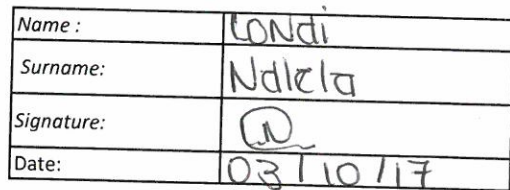 Name : LONdi
Surname: Ndlela
Signature:
Date: 03/10/17